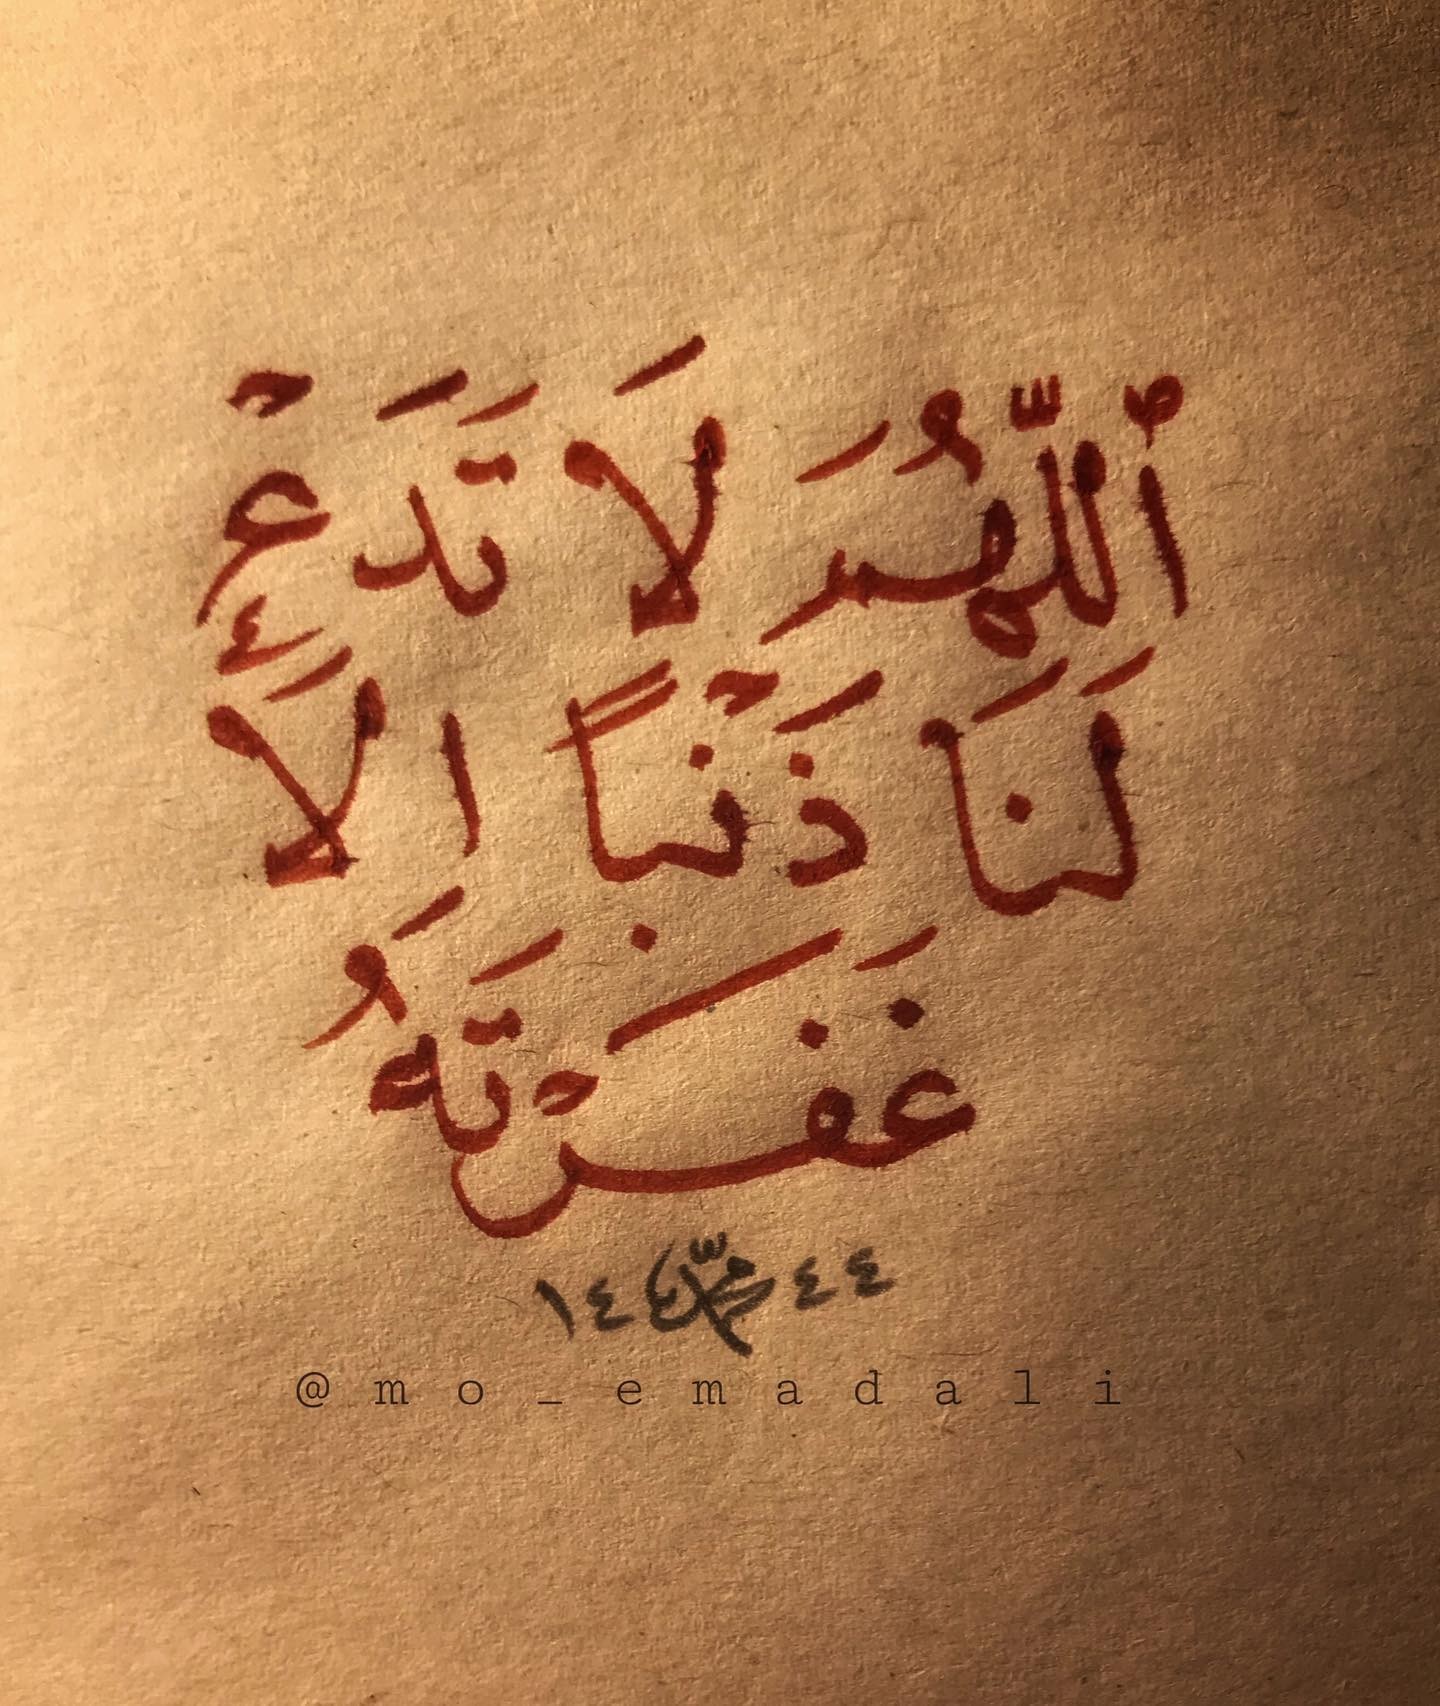 ٱللّهُمَ لَا تَدَعْ
لَنَا ذَنْبًا الَّا
غَفَرْتَهُ
١٤ محمّد ٤٤
@mo_emadali